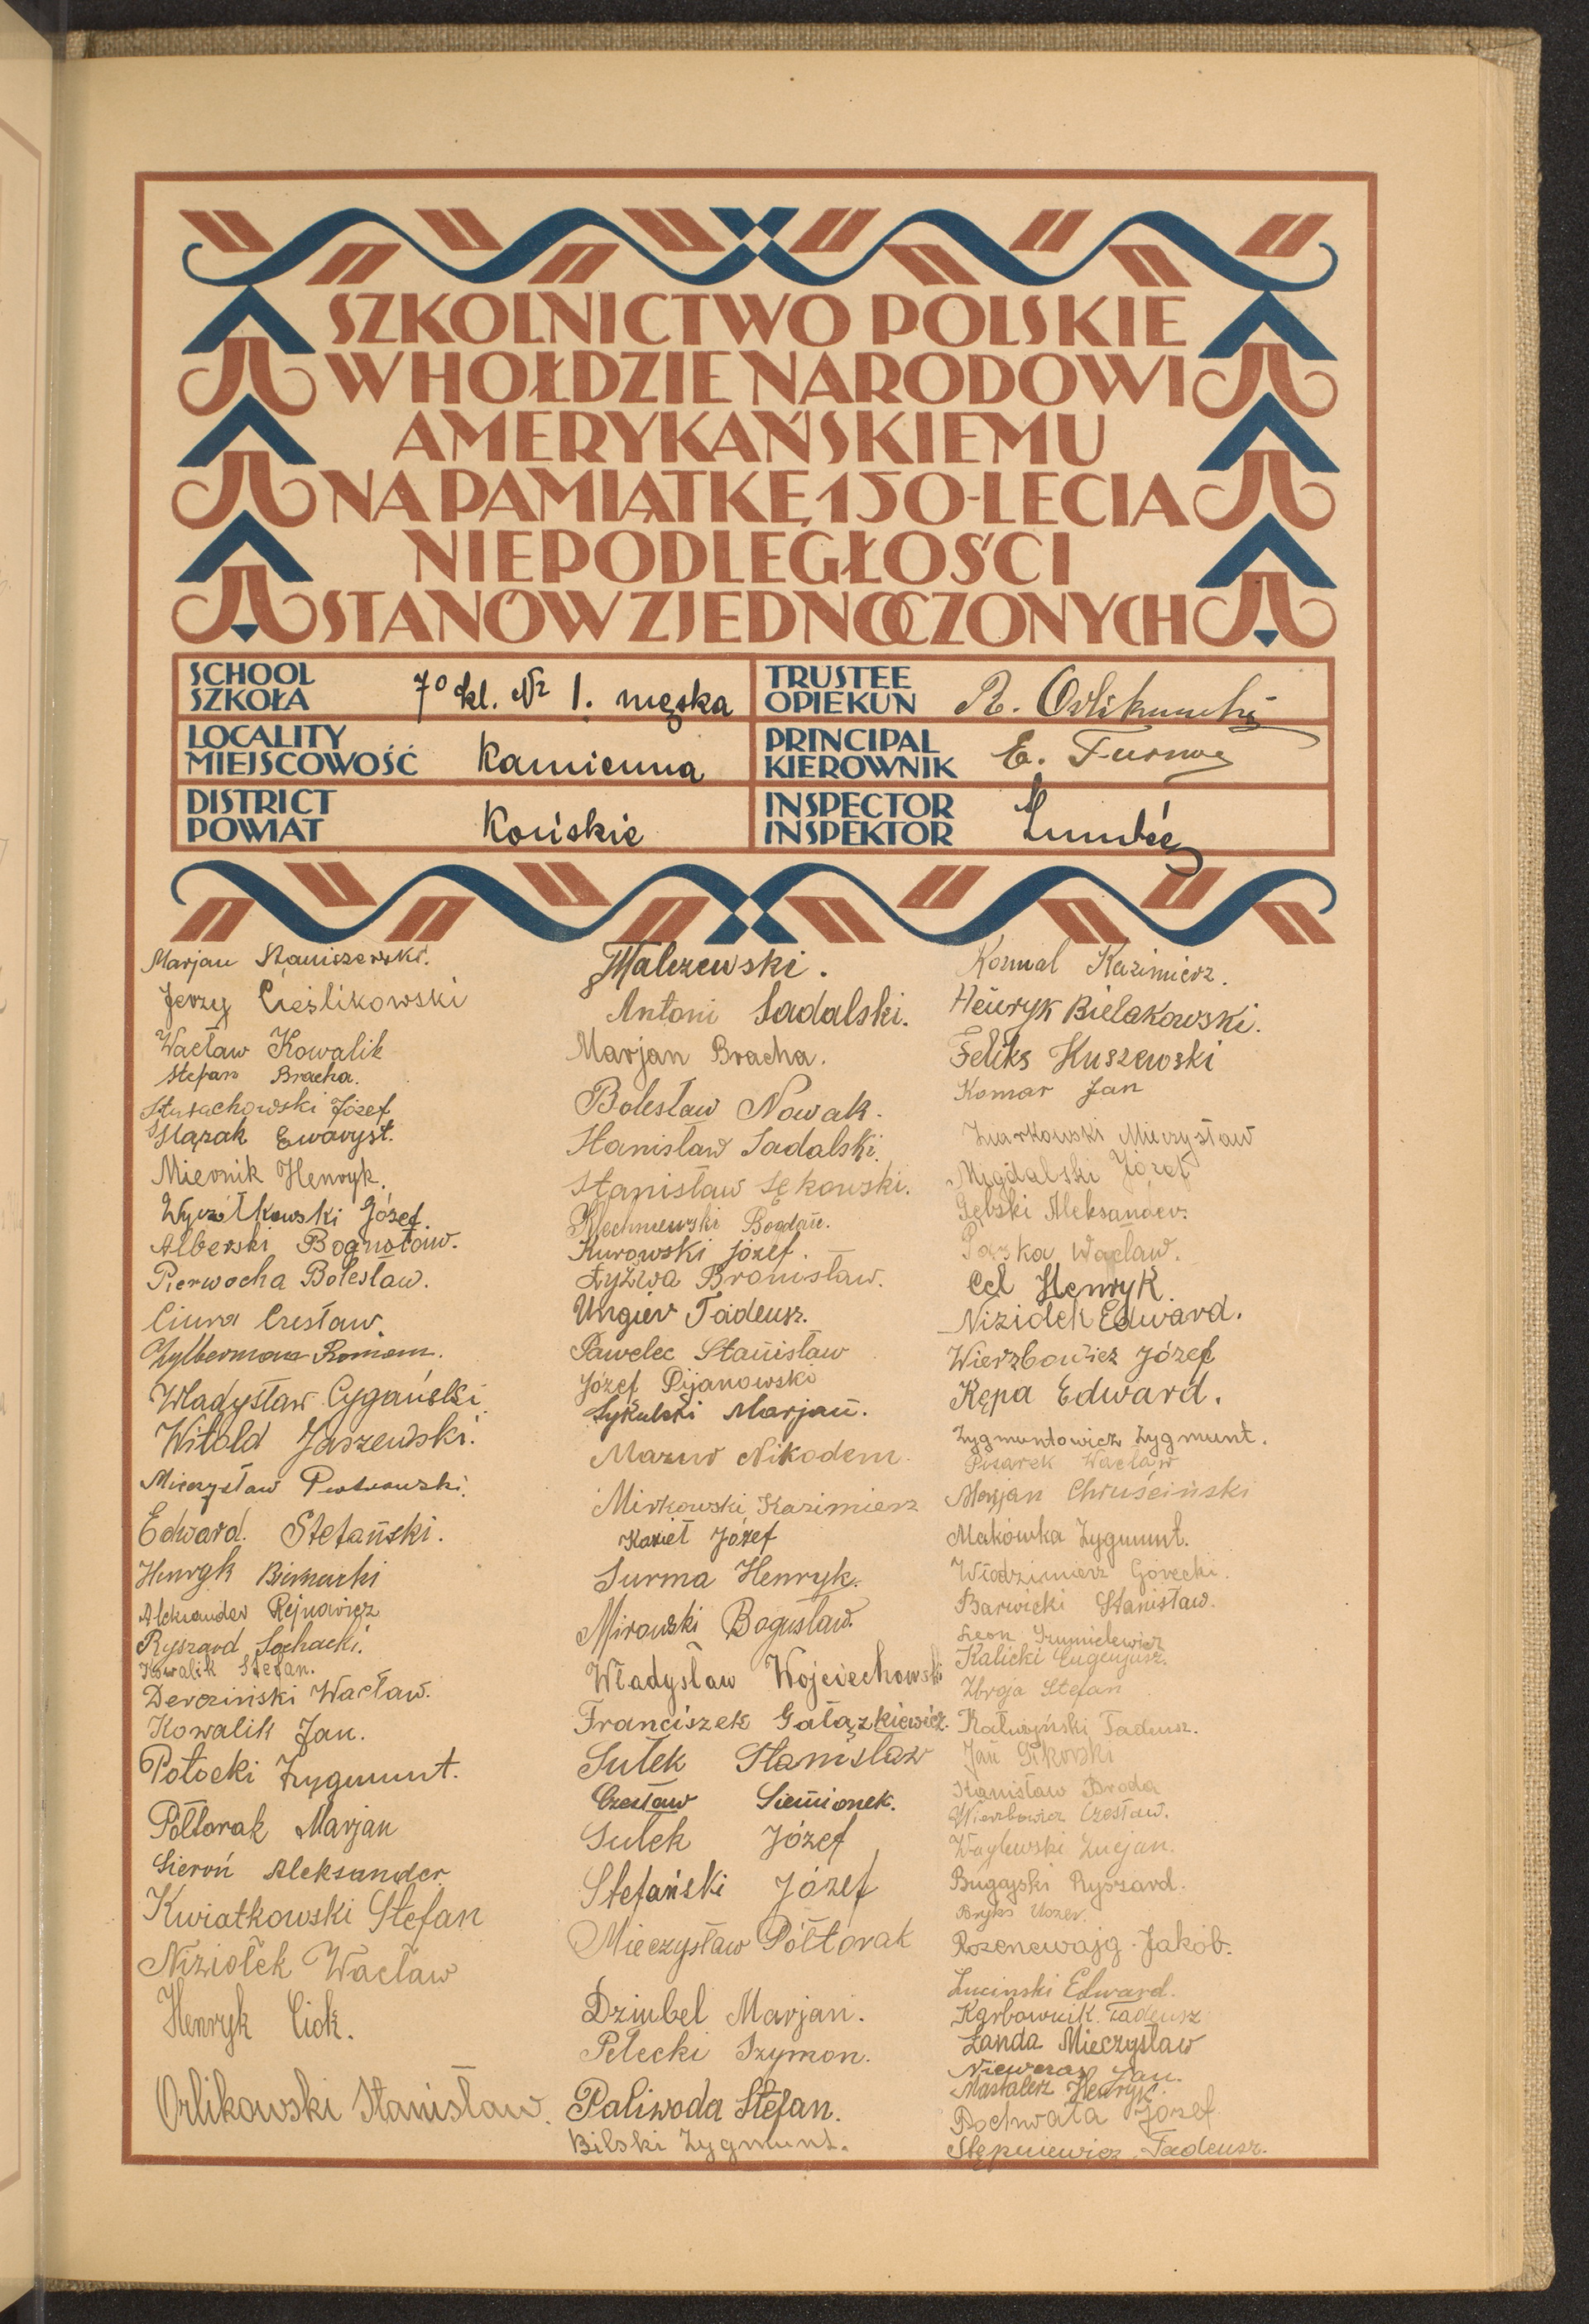 SZKOLNICTWO POLSKIE
W HOŁDZIE NARODOWI
AMERYKAŃSKIEMU
NA PAMIĄTKĘ 150-LECIA
NIEPODLEGŁOŚCI
STANÓW ZJEDNOCZONYCH
SCHOOL
SZKOŁA
7º kl. Nr 1. męska
TRUSTEE
OPIEKUN
R.
LOCALITY
MIEJSCOWOŚĆ
Kamienna
PRINCIPAL
KIEROWNIK
E.
DISTRICT
POWIAT
Końskie
INSPECTOR
INSPEKTOR
Marjan Staniszewski.
Jerzy Cieślikowski
Wacław Kowalik
Stefan Bracha.
Józef
Ślązak Ewaryst.
Miernik Henryk.
Józef.
Alberski Bogusław.
Pierwocha Bolesław.
Ciura Czesław.
Zylberman Roman.
Władysław Cygański.
Witold Jaszewski.
Mieczysław Piotrowski.
Edward Stefański.
Henryk Biernacki
Aleksander Rejnowicz
Ryszard Sochacki.
Kowalik Stefan.
Derziński Wacław.
Kowalik Jan.
Potocki Zygmunt.
Półtorak Marjan
Sieroń Aleksander
Kwiatkowski Stefan
Niziołek Wacław
Henryk Ciok.
Orlikowski Stanisław.
Malczewski.
Antoni Sadalski.
Marjan Bracha.
Bolesław Nowak.
Stanisław Sadalski.
Stanisław Sękowski.
Klechniewski Bogdan.
Kurowski Józef.
Łyżwa Bronisław.
Ungier Tadeusz.
Pawelec Stanisław
Józef Pijanowski
Sykulski Marjan.
Mazur Nikodem.
Mirkowski Kazimierz
Kozieł Józef
Surma Henryk.
Mirowski Bogusław.
Władysław Wojciechowski
Franciszek Gałązkiewicz.
Sułek Stanisław
Czesław Siemionek.
Sułek Józef
Stefański Józef
Mieczysław Półtorak
Dziubel Marjan.
Pełecki Szymon.
Paliwoda Stefan.
Bilski Zygmunt.
Kazimierz.
Henryk Bielakowski.
Feliks Kuszewski
Komar Jan
Ziarkowski Mieczysław
Migdalski Józef
Gębski Aleksander.
Paszka Wacław.
Cel Henryk.
Niziołek Edward.
Wierzbowicz Józef
Kępa Edward.
Zygmuntowicz Zygmunt.
Pisarek Wacław
Marjan Chruściński
Makówka Zygmunt.
Włodzimierz Górecki.
Barwicki Stanisław.
Leon
Kalicki Eugenjusz.
Zbroja Stefan
Kałużyński Tadeusz.
Jan Sikorski
Stanisław Broda
Wierzbowicz Czesław.
Waglewski Lucjan.
Bugajski Ryszard.
Bryks
Rozencwajg Jakób.
Luciński Edward.
Karbownik Tadeusz
Łanda Mieczysław
Jan.
Masztalerz Henryk.
Pochwała Józef
Stępniewicz Tadeusz.